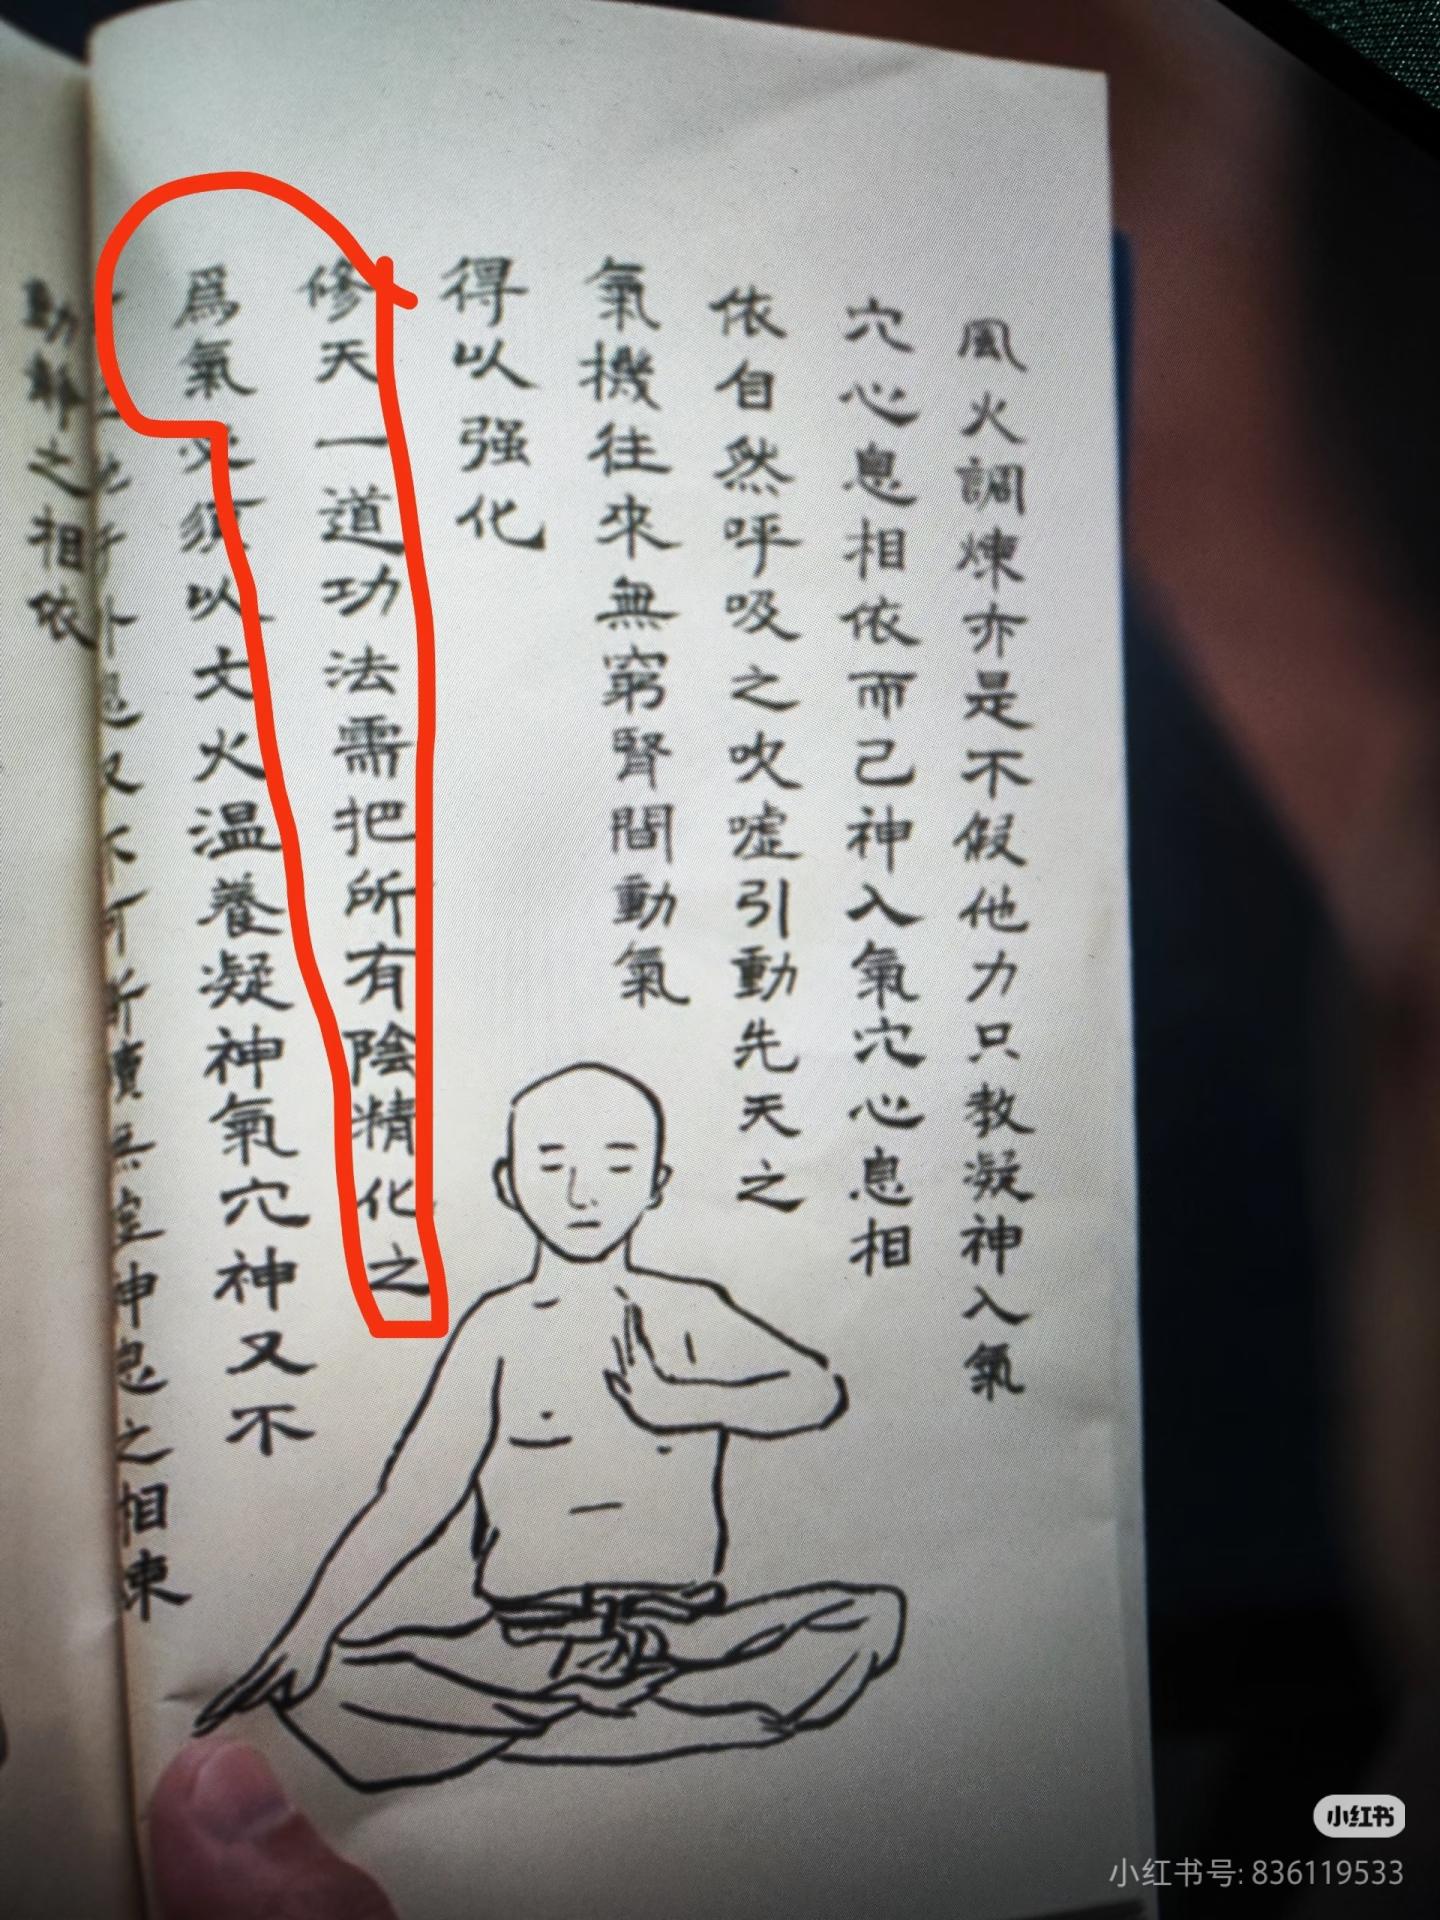 風火調煉亦是不假他力只教凝神入氣
穴心息相依而己神入氣穴心息相
依自然呼吸之吹噓引動先天之
氣機往來無窮腎間動氣
得以强化
修天一道功法需把所有陰精化之
爲氣必須以文火温養凝神氣穴神又不
息又不可斷續無定神息之相束
動靜之相依
小红书
小红书号: 836119533